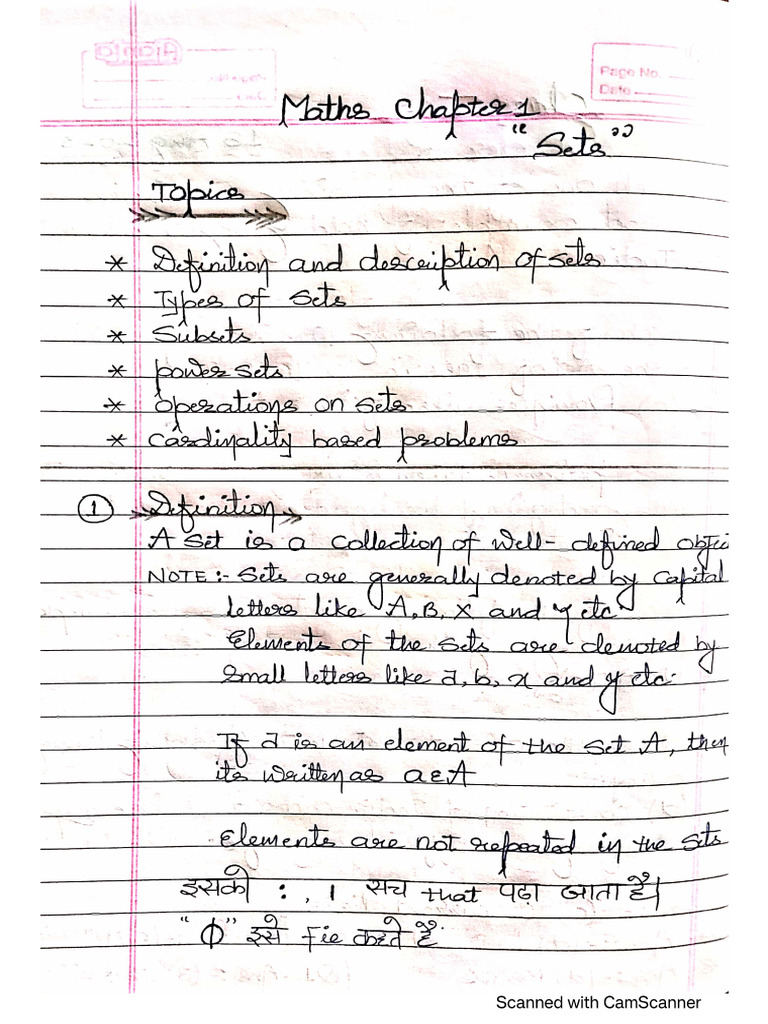 Page No.
Date
Maths Chapter 1
"Sets"
Topics
* Definition and description of sets
* Types of Sets
* Subsets
* power sets
* operations on sets
* Cardinality based problems
① Definition
A set is a collection of well-defined objec
NOTE:- Sets are generally denoted by Capital
letters like A, B, X and Y etc
Elements of the sets are denoted by
Small letters like a, b, x and y etc.
If a is an element of the set A, then
its written as a∈A
Elements are not repeated in the sets
इसको : , | सच that पढ़ा जाता है।
"ϕ" इसे fie कहते है
Scanned with CamScanner